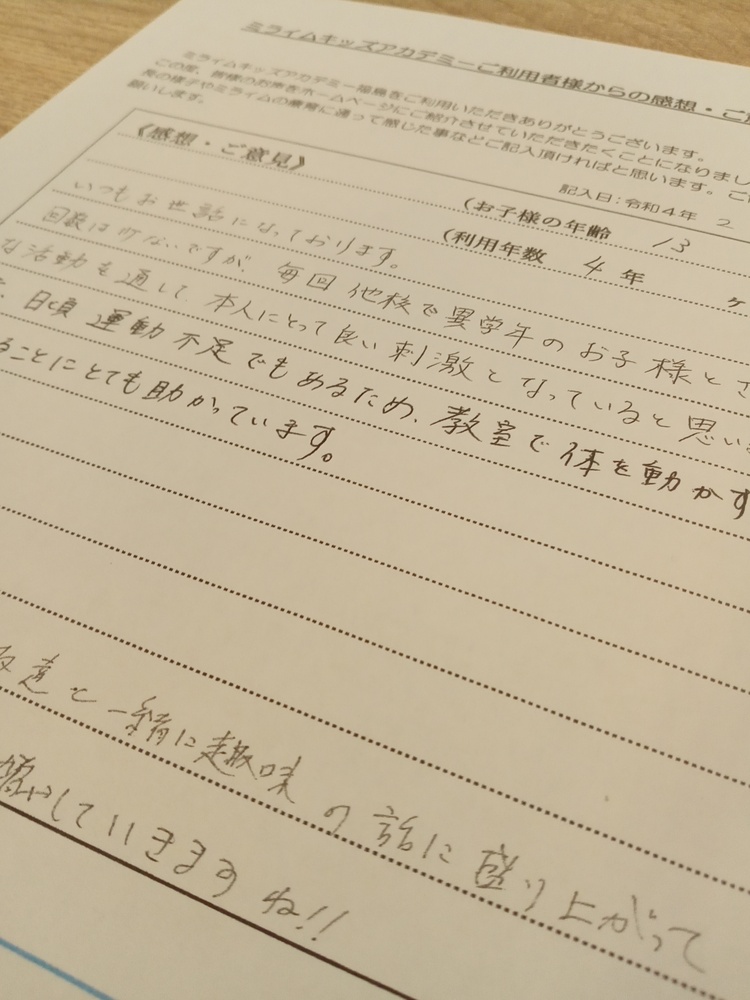 ミライムキッズアカデミーご利用者様からの感想・ご
ミライムキッズアカデミー福島をご利用いただきありがとうございます。
この度、皆様のお声をホームページにご紹介させていただきたくことになりまし
長の様子やミライムの療育に通って感じた事などご記入頂ければと思います。ご
願いします。
記入日:令和4年 2
《感想・ご意見》
(お子様の年齢 13
(利用年数 4 年 ケ
いつもお世話になっております。
回数は少ないですが、毎回 他校で異学年のお子様とさ
な活動を通して、本人にとって良い刺激となっていると思い
日頃 運動不足でもあるため、教室で体を動かす
ることにとても助かっています。
友達と一緒に趣味の話に盛り上がって
していきますね!!